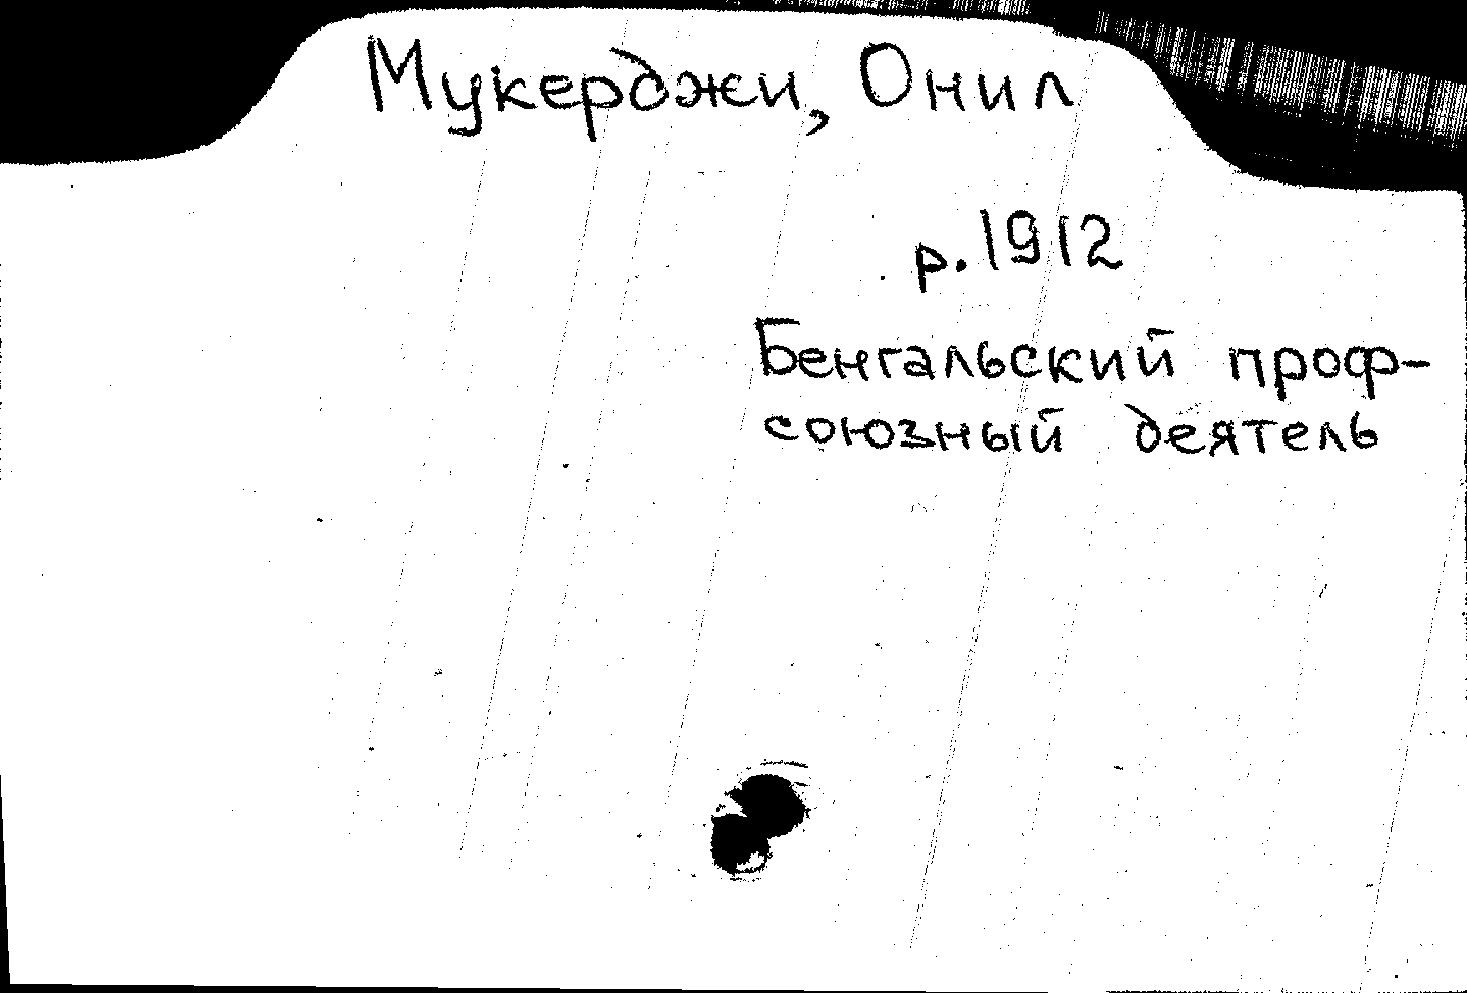 Мукерджи, Онил
р. 1912
Бенгальский проф-
союзный деятель